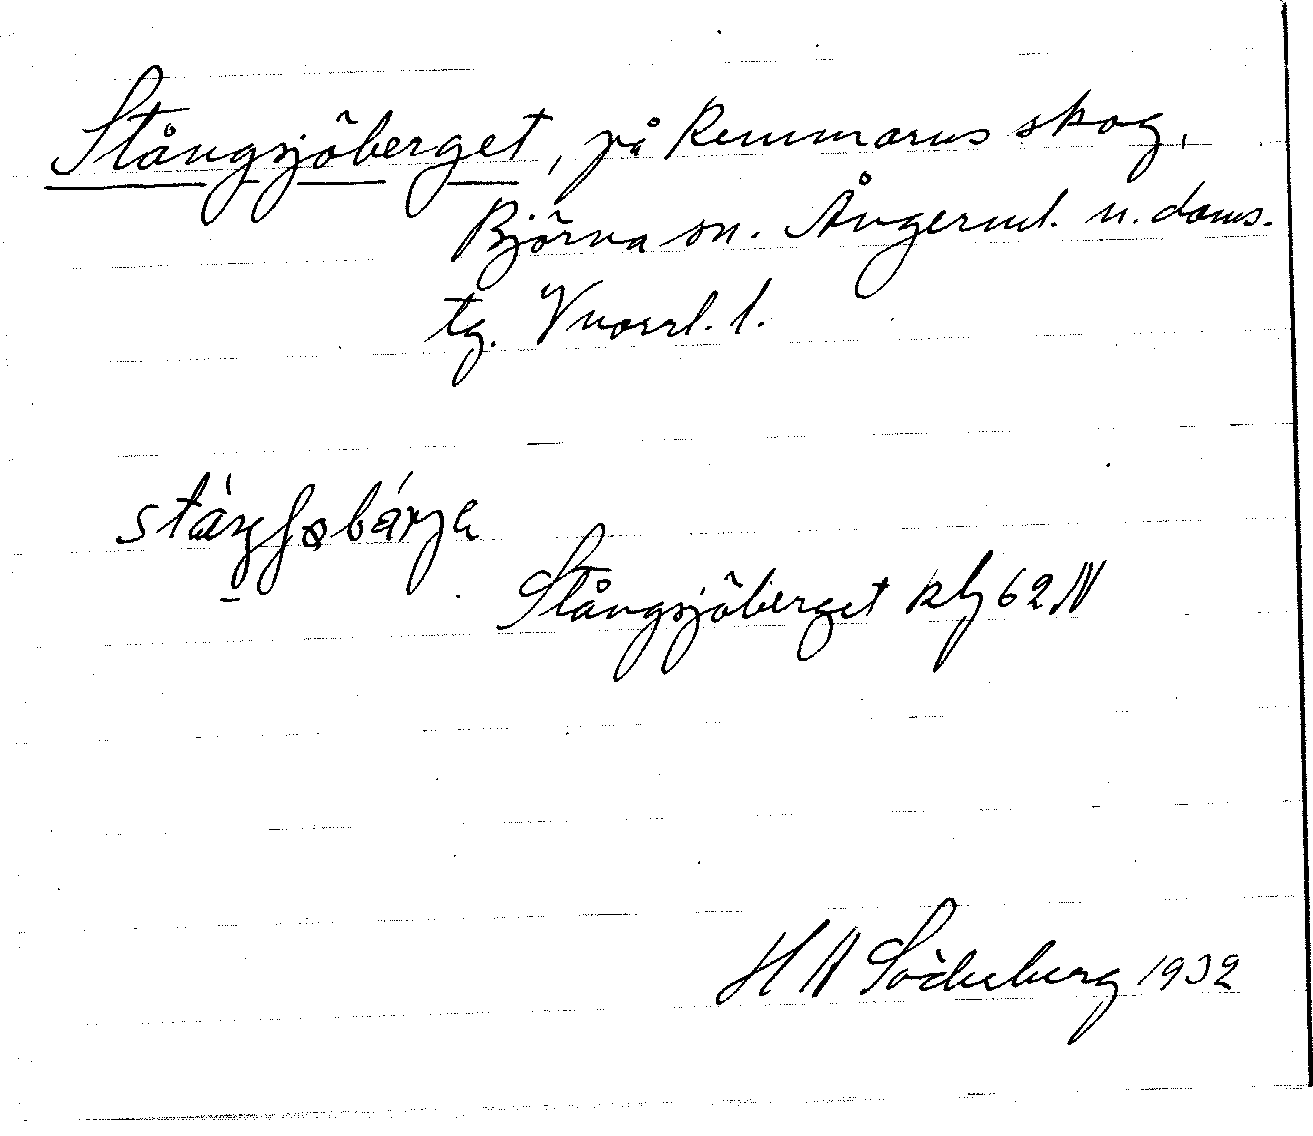 Stångsjöberget, på Remmarns skog,
Björna sn. Ångerml. n. doms.
tg. Vnorrl. l.
Stångsjöberget kbl 62 N
H A Söderberg 1932